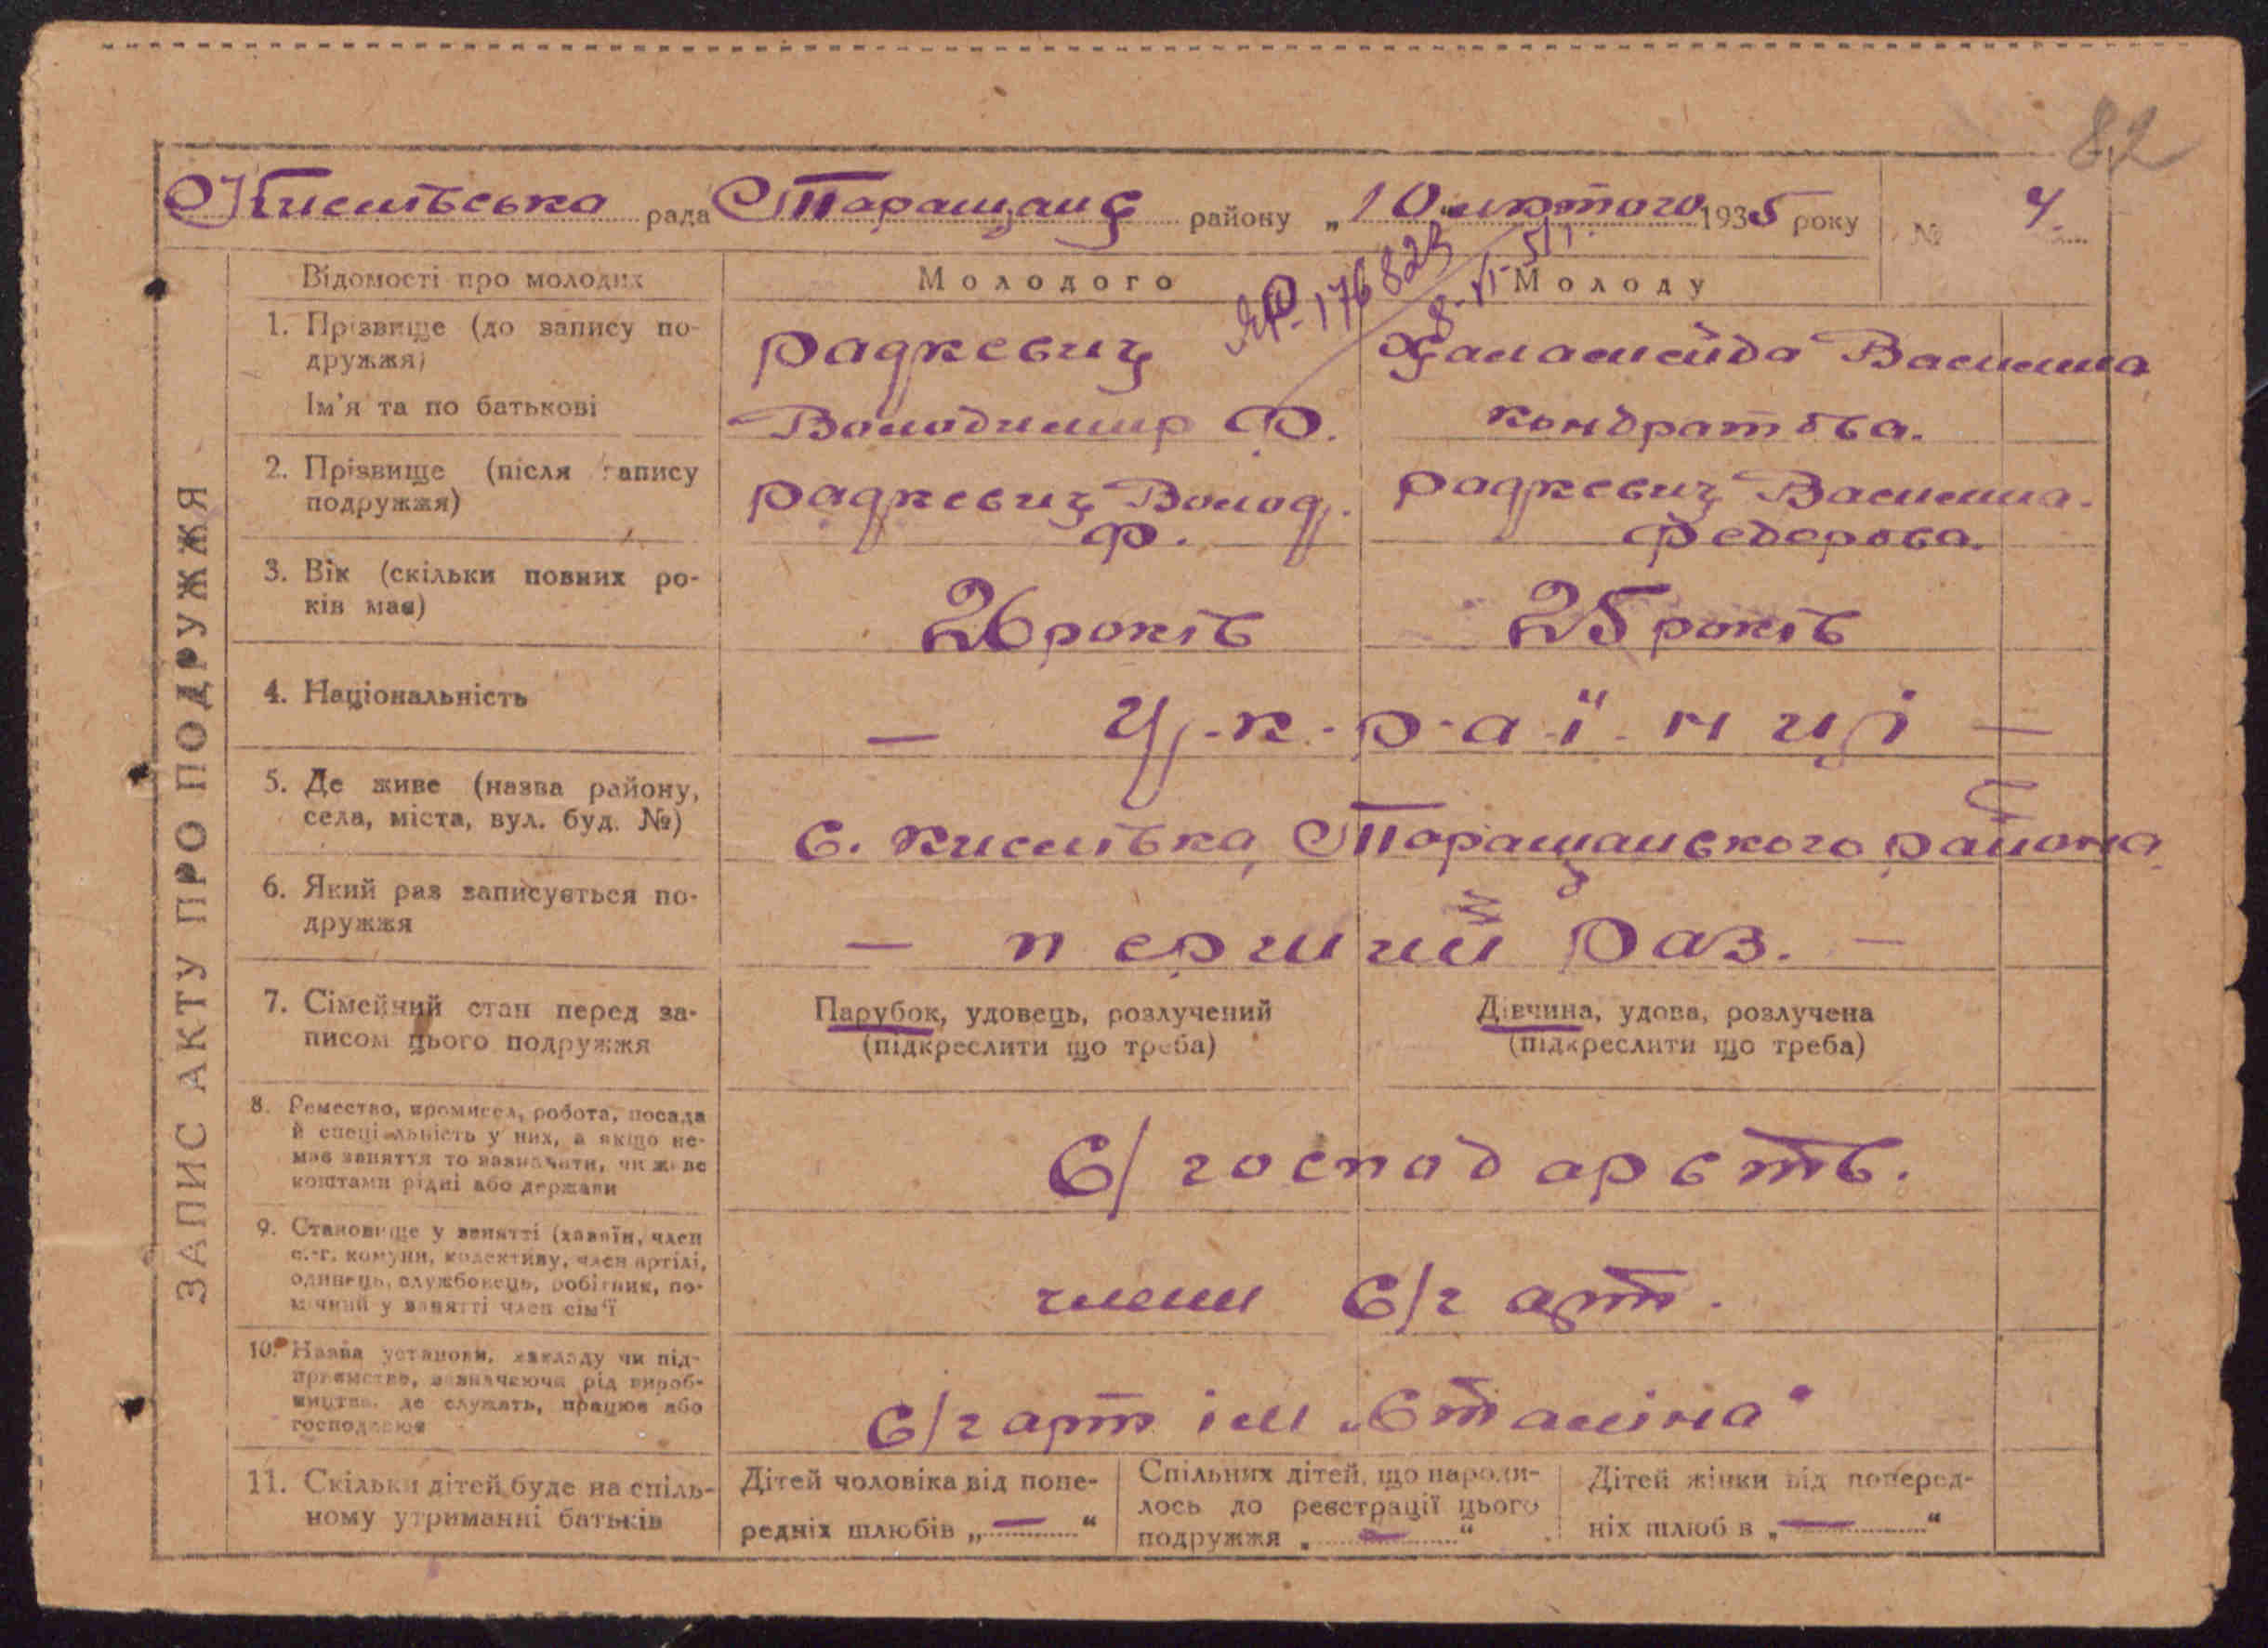 82
Кислівська рада Таращанс району „10" лютого 1935 року № 4.
ЗАПИС АКТУ ПРО ПОДРУЖЖЯ
Відомості про молодих
Молодого
Молоду
176823
8-VI-51
1. Прізвище (до запису по-
дружжя)
Ім'я та по батькові
Радкевич
Володимир Ф.
Василина
Кондратова.
2. Прізвище (після запису
подружжя)
Радкевич Волод.
Ф.
Радкевич Василина.
Федорова.
3. Вік (скільки повних ро-
ків має)
26 років
25 років
4. Національність
— У-к-р-а-ї-н ці —
5. Де живе (назва району,
села, міста, вул. буд. №)
с. Кислівка, Таращанского района
6. Який раз записується по-
дружжя
— перший раз. —
7. Сімейний стан перед за-
писом цього подружжя
Парубок, удовець, розлучений
(підкреслити що треба)
Дівчина, удова, розлучена
(підкреслити що треба)
8. Ремество, промисел, робота, посада
й спеціяльність у них, а якщо не-
має заняття то зазначити, чи живе
коштами рідні або держави
С/господарств.
9. Становище у занятті (хазяїн, член
с.-г. комуни, колективу, член артілі,
одинець, службовець, робітник, по-
мічний у занятті член сім'ї
члени С/г арт.
10. Назва установи, закладу чи під-
приємства, зазначаючи рід вироб-
ництва, де служать, працює або
господарює
С/г арт ім „Сталіна"
11. Скільки дітей буде на спіль-
ному утриманні батьків
Дітей чоловіка від попе-
редніх шлюбів „—"
Спільних дітей, що народи-
лось до реєстрації цього
подружжя „—"
Дітей жінки від поперед-
ніх шлюбів „—"